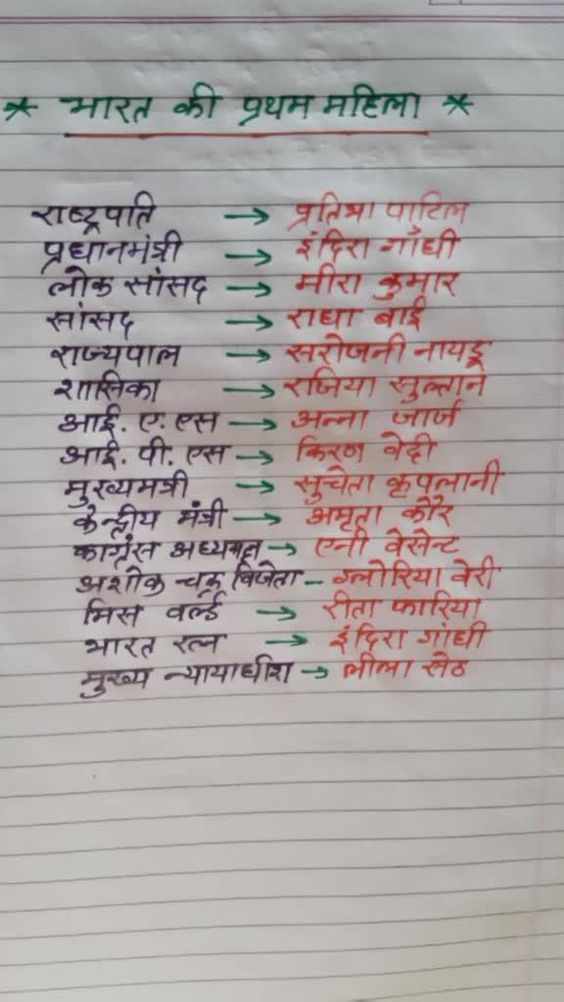 * भारत की प्रथम महिला *
राष्ट्रपति → प्रतिभा पाटिल
प्रधानमंत्री → इंदिरा गाँधी
लोक सांसद → मीरा कुमार
सांसद → राधा बाई
राज्यपाल → सरोजनी नायडू
शासिका → रजिया सुल्तान
आई. ए. एस → अन्ना जार्ज
आई. पी. एस → किरण वेदी
मुख्यमंत्री → सुचेता कृपलानी
केन्द्रीय मंत्री → अमृता कौर
कांग्रेस अध्यक्ष → एनी वेसेन्ट
अशोक चक्र विजेता – ग्लोरिया वेरी
मिस वर्ल्ड → रीता फारिया
भारत रत्न → इंदिरा गांधी
मुख्य न्यायाधीश → लीला सेठ